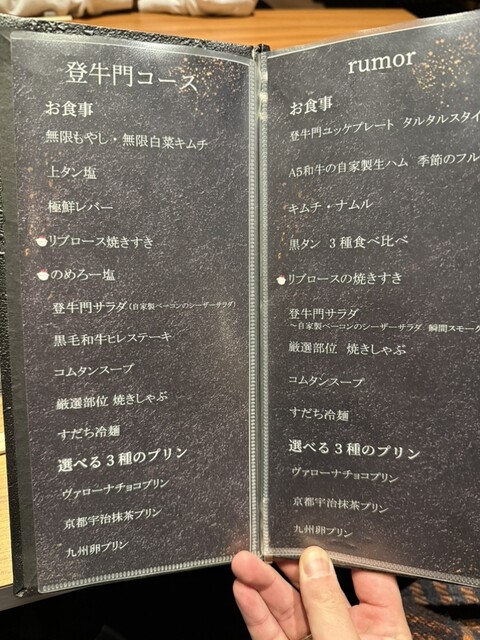 登牛門コース
お食事
無限もやし・無限白菜キムチ
上タン塩
極鮮レバー
リブロース焼きすき
のめろー塩
登牛門サラダ(自家製ベーコンのシーザーサラダ)
黒毛和牛ヒレステーキ
コムタンスープ
厳選部位 焼きしゃぶ
すだち冷麺
選べる3種のプリン
ヴァローナチョコプリン
京都宇治抹茶プリン
九州卵プリン
rumor
お食事
登牛門ユッケプレート タルタルスタイ
A5和牛の自家製生ハム 季節のフル
キムチ・ナムル
黒タン 3種食べ比べ
リブロースの焼きすき
登牛門サラダ
~自家製ベーコンのシーザーサラダ 瞬間スモーク
厳選部位 焼きしゃぶ
コムタンスープ
すだち冷麺
選べる3種のプリン
ヴァローナチョコプリン
京都宇治抹茶プリン
九州卵プリン